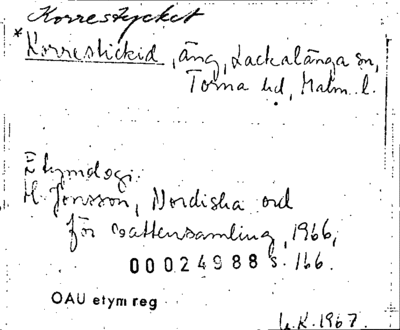 Korrestycket
*Korrestickid, äng, Lackalänga sn,
Torna hd, Malm. l.
Etymologi:
H. Jonsson, Nordiska ord
för vattensamling, 1966,
00024988 s. 166.
OAU etym reg
K. 1967.